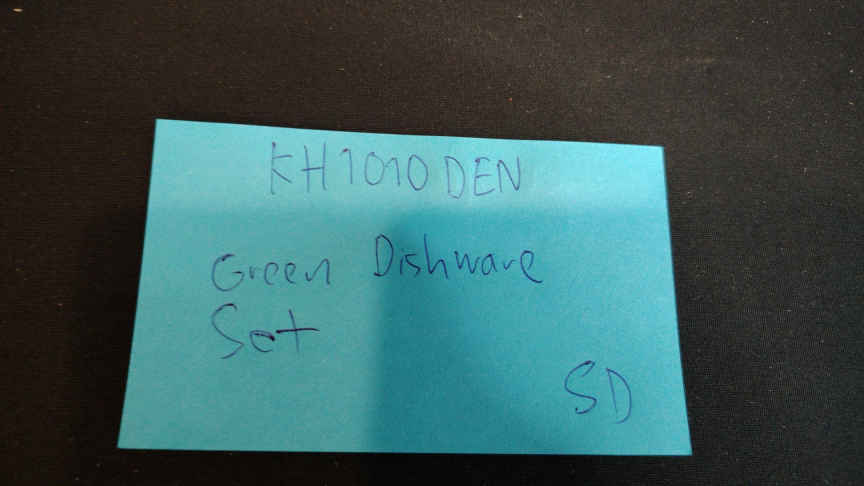 KH1010DEN
Green Dishware
Set
SD